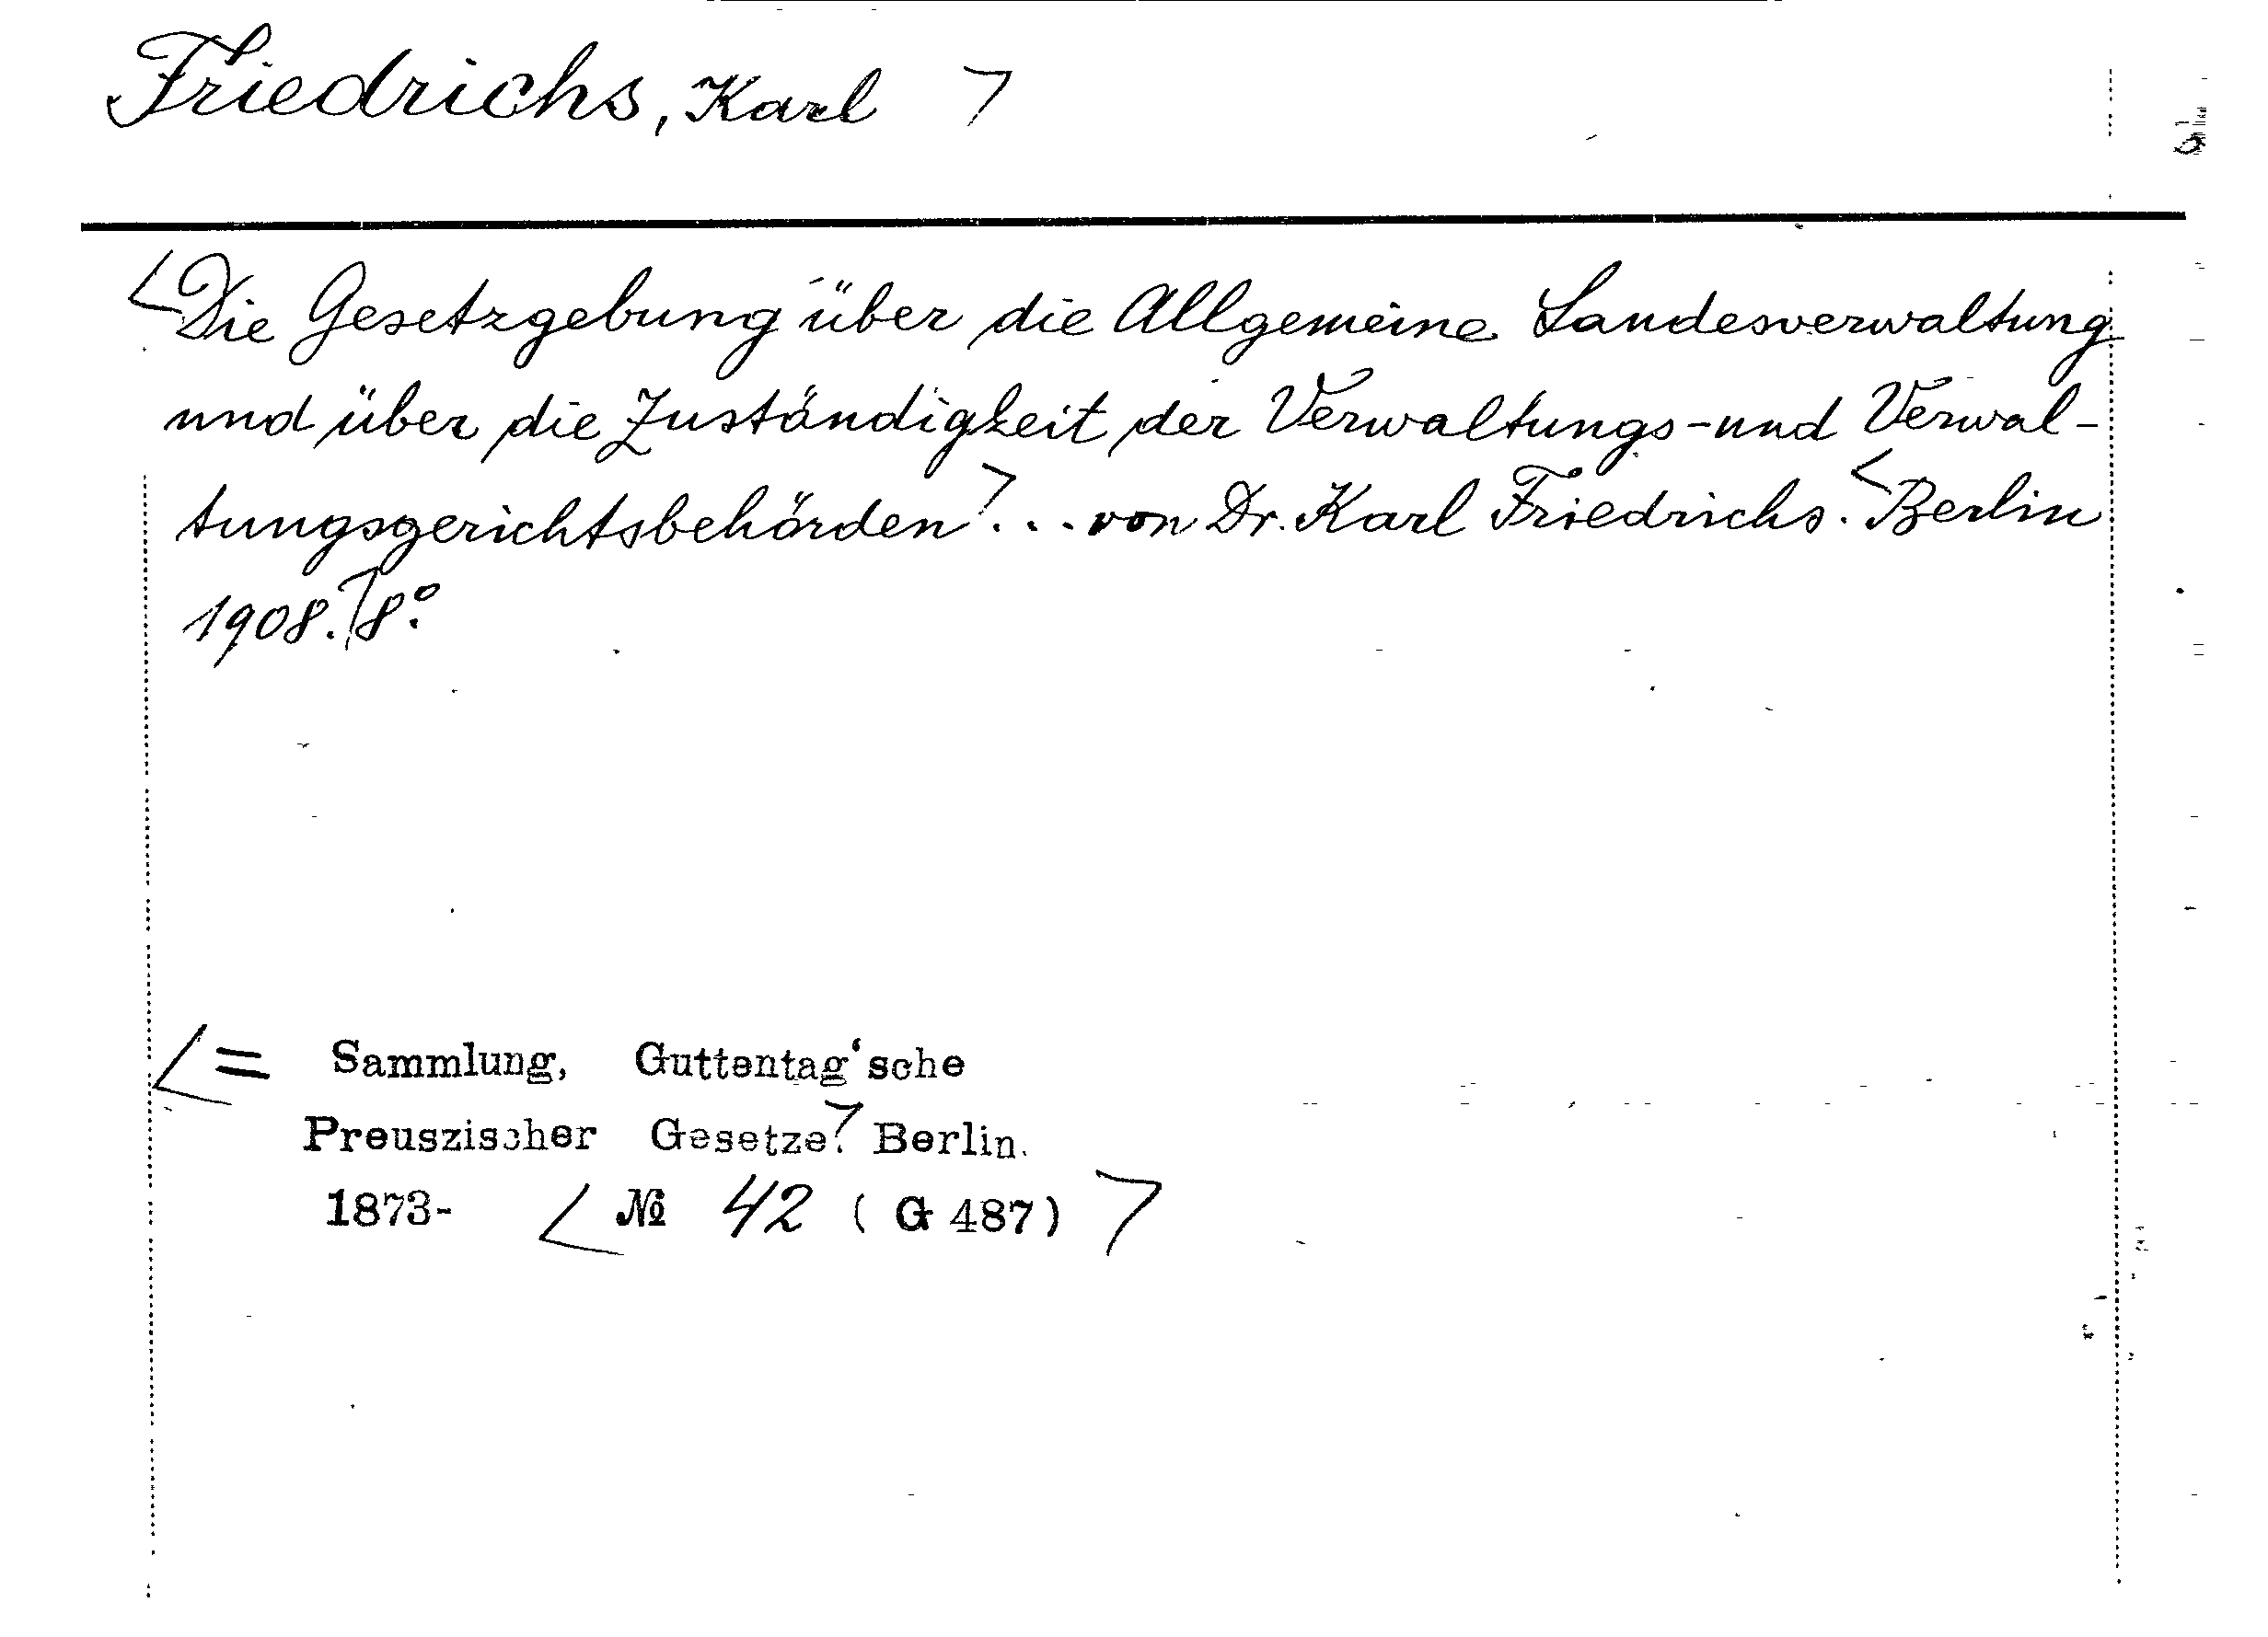 Friedrichs, Karl
Die Gesetzgebung über die Allgemeine Landesverwaltung
und über die Zuständigkeit der Verwaltungs-und Verwal-
tungsgerichtsbehörden... von Dr. Karl Friedrichs. Berlin
1908. 8°.
= Sammlung, Guttentag'sche
Preuszischer Gesetze. Berlin.
1873- № 42 (G 487)